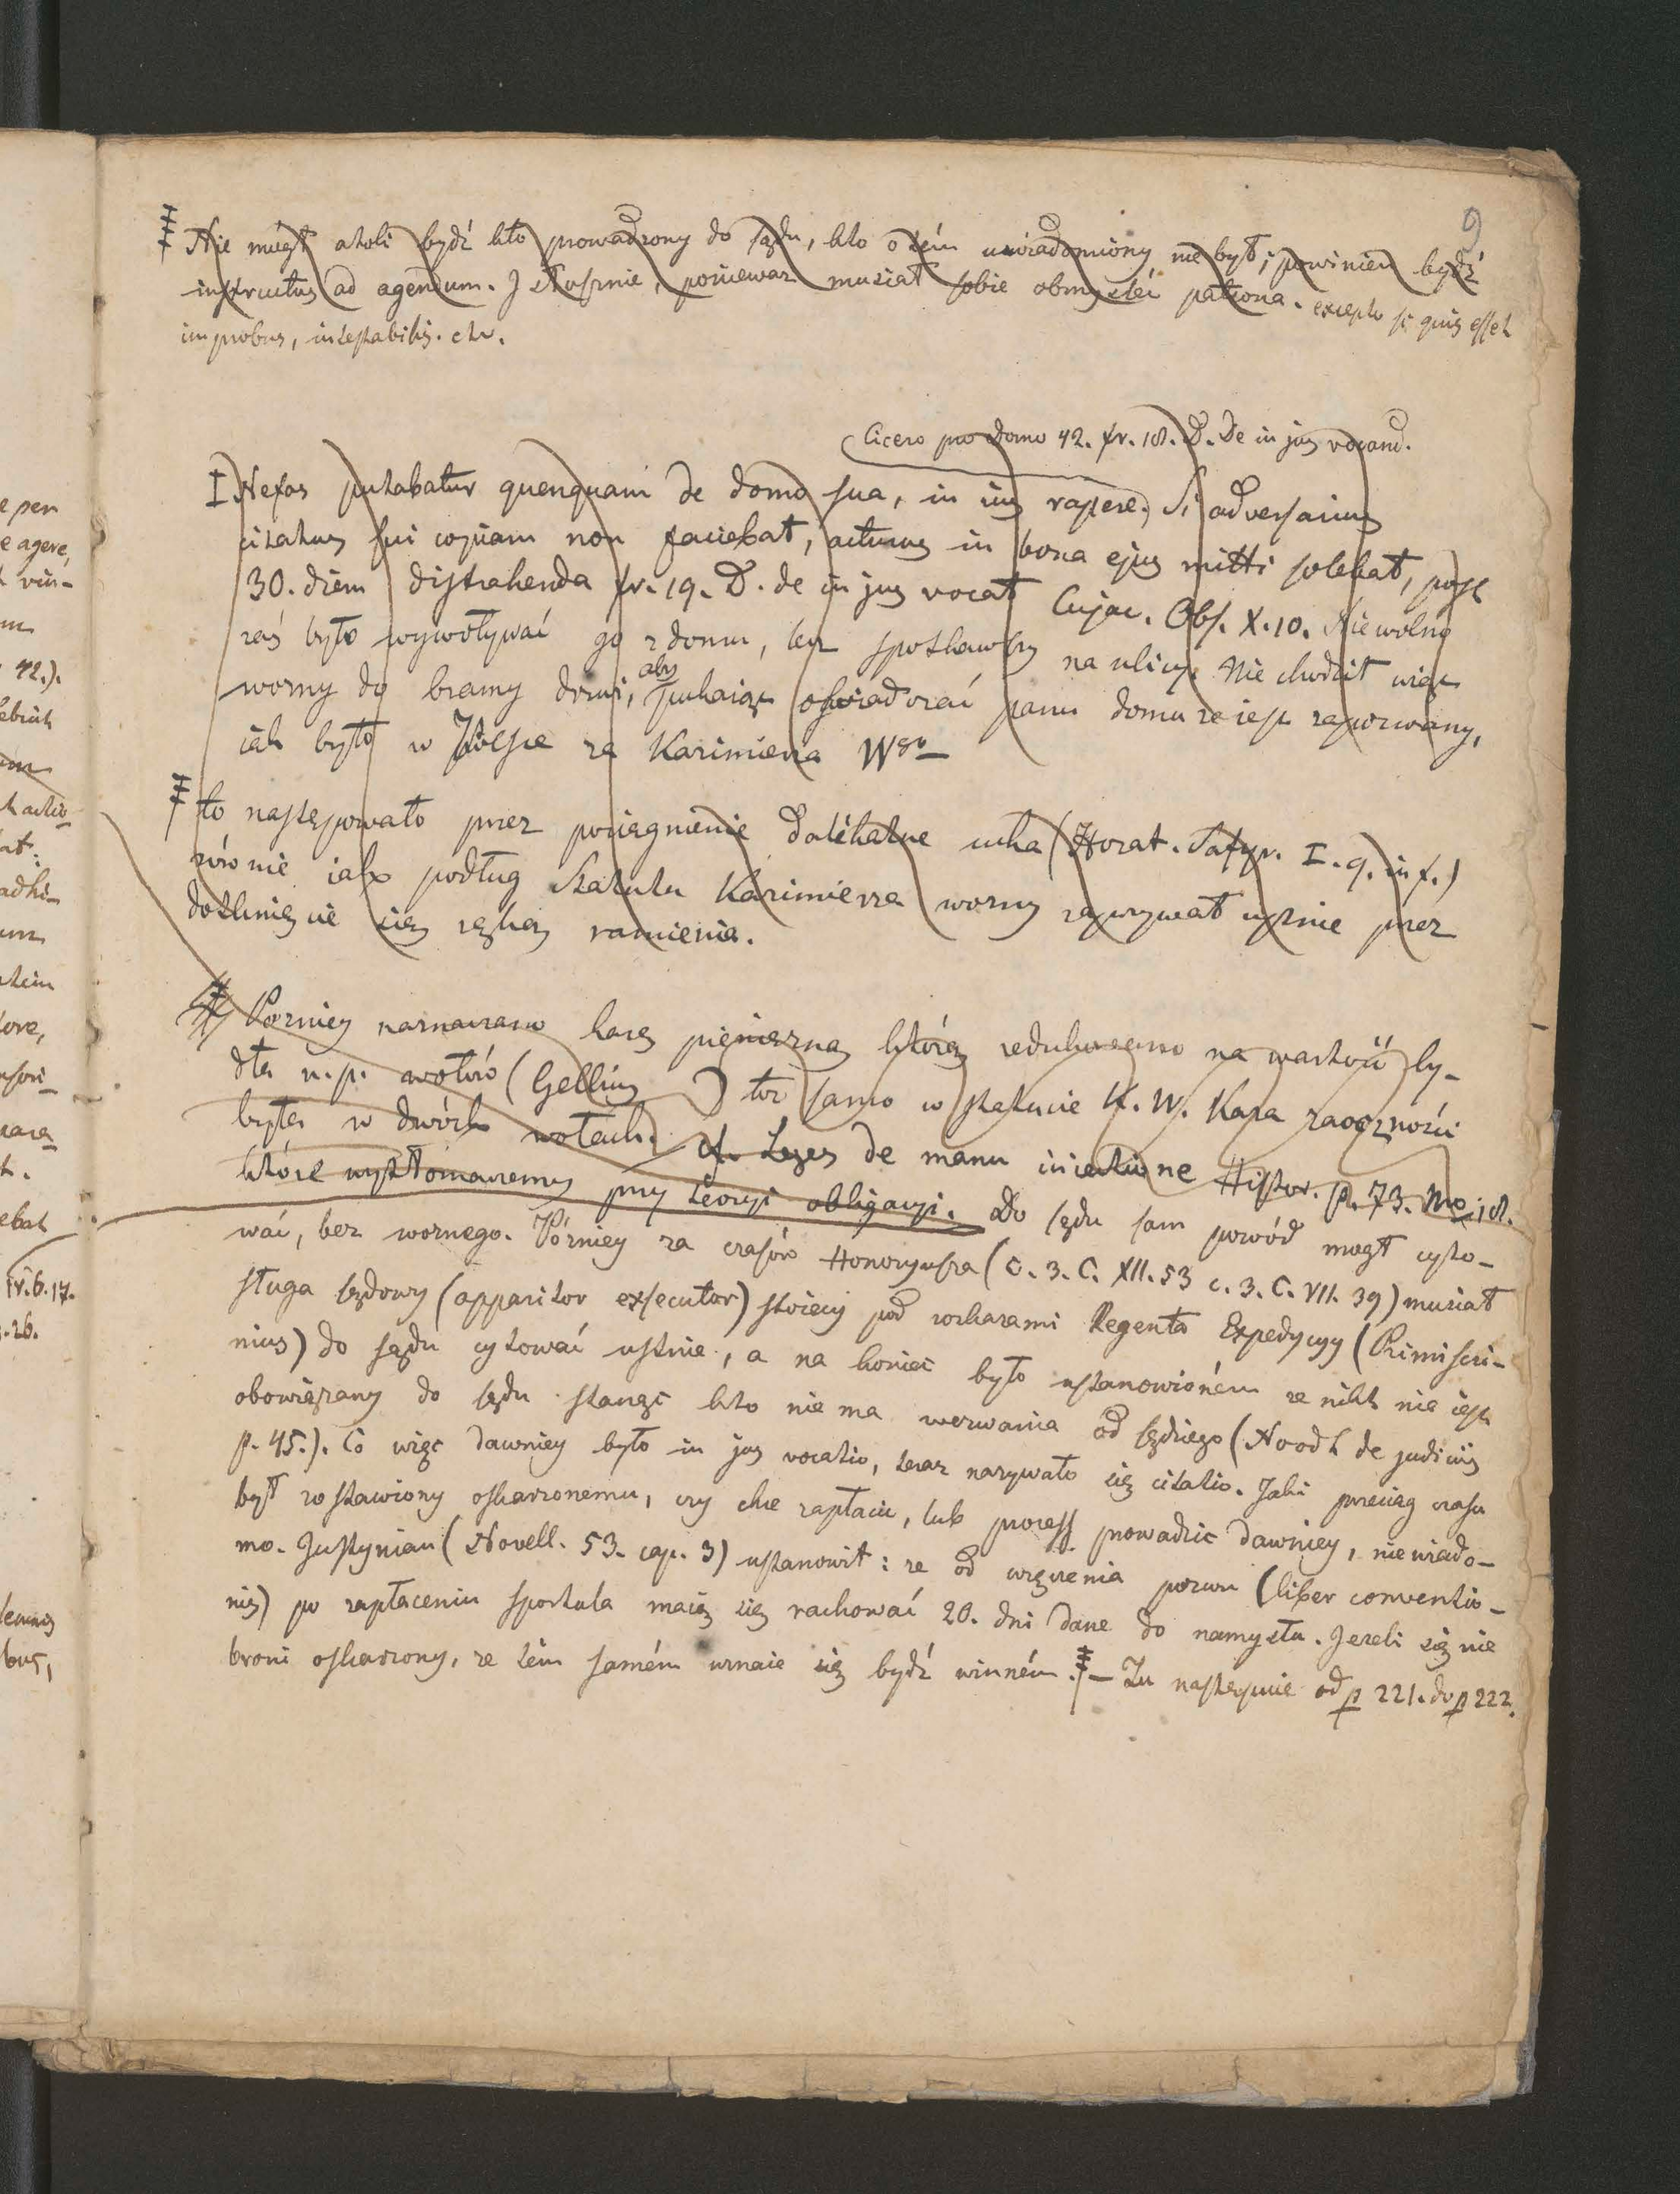 9
Nie mógł atoli bydź kto prowadzony do sądu, kto o tém uwiadomiony nie był; powinien bydź
instructus ad agendum. I słusznie, ponieważ musiał sobie obmysleć patrona. excepto si quis esset
improbus, intestabilis. etc.
Cicero pro domo 42. fr. 18. D. De in jus vocand.
I Nefas putabatur quenquam de domo sua, in ius rapere. Si adversarius
citatus sui copiam non faciebat, acturus in bona ejus mitti solebat, post
30. diem distrahenda fr. 19. D. de in jus vocat Cujac. Obs. X. 10. Nie wolno
zaś było wywoływać go z domu, lecz spotkawszy na ulicy. Nie chodził więc
wozny do bramy drzwi, aby pukaiąc oświadczać panu domu ze iest zapozwany,
iak było w Polsce za Kazimierza Wgo
to następowało przez pociągnienie dalikatne ucha (Horat. Satyr. I. 9. in f.)
równie iak podług Statutu Kazimierza wozny zapozywał ustnie przez
dotknięcie się ręką ramienia.
Pózniey naznaczano karę pieniężną którą redukowano na wartość by-
dła n. p. wołów (Gellius ) toż samo w statucie K. W. Kara zaoczności
była w dwóch wołach. cf. Leges de manu iniectione Histor. p. 73. No. 18.
które wytłomaczemy przy teoryi obligacyi. Do sądu sam powód mogł cyto-
wać, bez woznego. Pózniey za czasów Honoryusza (c. 3. C. XII. 53 c. 3. C. VII. 39) musiał
sługa sądowy (apparitor exsecutor) stoiący pod rozkazami Regenta Expedycyy (Primiscri-
nius) do sądu cytować ustnie, a na koniec było ustanowioném ze nikt nie iest
obowiązany do sądu stanąć kto nie ma wezwania od sędziego (Noodt de judiciis
p. 45.). Co więc dawniey było in jus vocatio, teraz nazywało się citatio. Jaki przeciąg czasu
był zostawiony oskarzonemu, czy chce zapłacić, lub process prowadzić dawniey, niewiado-
mo. Justynian (Novell. 53. cap. 3) ustanowił: ze od wręczenia pozwu (liber conventio-
nis) po zapłaceniu sportula maią się rachować 20. dni dane do namysłu. Jezeli się nie
broni oskarzony, ze tém samém uznaie się bydź winném. — Tu następuie od p 221. do p 222.